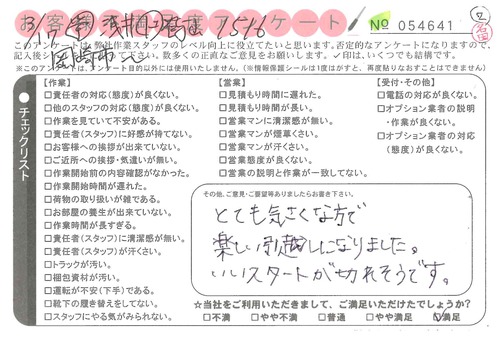 お客様 アンケート
№ 054641
3/17
1516
このアンケートは、弊社作業スタッフのレベル向上に役立てたいと思います。否定的なアンケートになりますので、
記入後 ください。数多くの真直なご意見をお願いします。✓印は、いくつでも結構です。
※このアンケートは、アンケート目的以外には使用いたしません。(※情報保護シールは1度はがすと、再度貼りなおすことはできません)
●チェックリスト
【作業】
□責任者の対応(態度)が良くない。
□他のスタッフの対応(態度)が良くない。
□作業を見ていて不安がある。
□責任者(スタッフ)に好感が持てない。
□お客様への挨拶が出来ていない。
□ご近所への挨拶・気遣いが無い。
□作業開始前の内容確認がなかった。
□作業開始時間が遅れた。
□荷物の取り扱いが雑である。
□お部屋の養生が出来ていない。
□作業時間が長すぎる。
□責任者(スタッフ)に清潔感が無い。
□責任者(スタッフ)が汗くさい。
□トラックが汚い。
□梱包資材が汚い。
□運転が不安(下手)である。
□靴下の履き替えをしてない。
□スタッフにやる気がみられない。
【営業】
□見積もり時間に遅れた。
□見積もり時間が長い。
□営業マンに清潔感が無い。
□営業マンが煙草くさい。
□営業マンが汗くさい。
□営業態度が良くない。
□営業の説明と作業が一致してない。
【受付・その他】
□電話の対応が良くない。
□オプション業者の説明
・作業が良くない。
□オプション業者の対応
(態度)が良くない。
その他、ご意見・ご要望等ありましたらお書き下さい。
とても気さくな方で
楽しい引越しになりました。
いいスタートが切れそうです。
☆当社をご利用いただきまして、ご満足いただけたでしょうか?
□不満 □やや不満 □普通 □やや満足 ☑満足